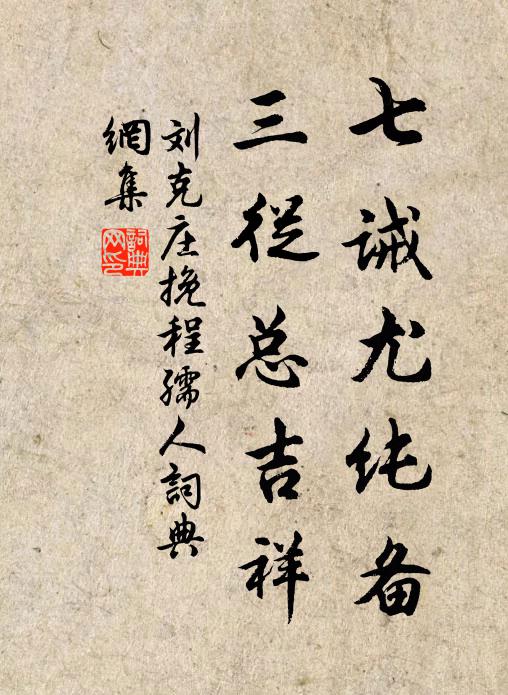 七诫尤纯备
三從总吉祥
刘克庄挽程孺人詞典
網集
詞典
网印